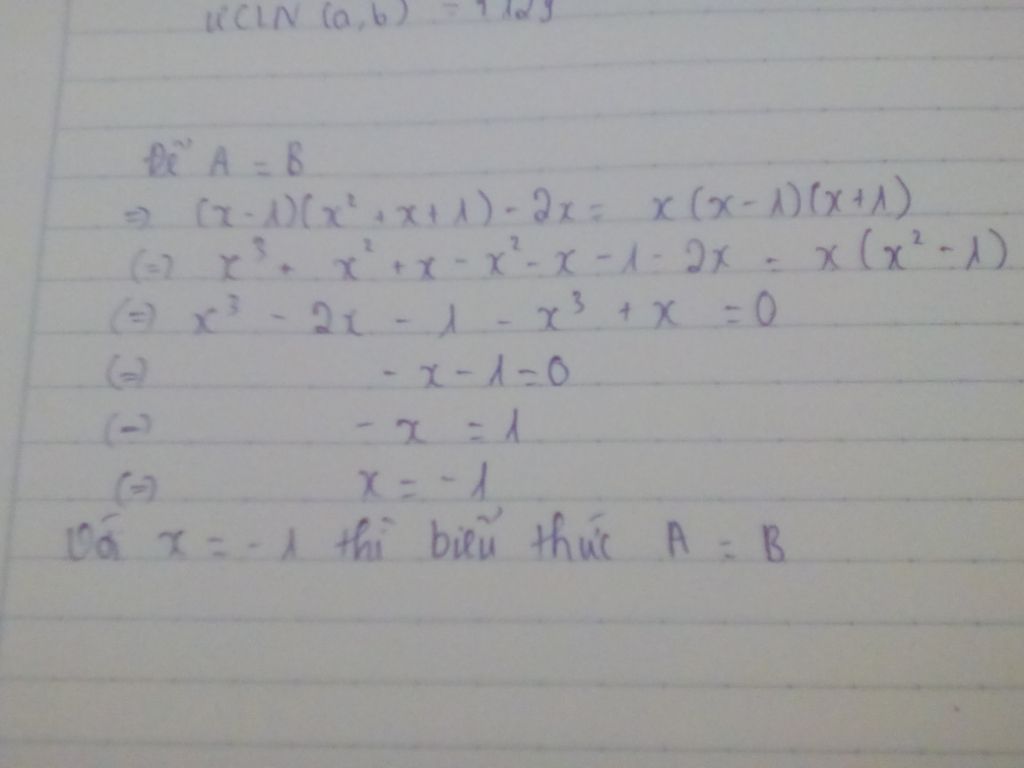 ƯCLN (a,b) = 1129
Để A = B
=> (x-1)(x²+x+1)-2x= x(x-1)(x+1)
(=) x³+ x²+x-x²-x-1-2x = x(x²-1)
(=) x³ - 2x - 1 - x³ + x = 0
(=) -x-1=0
(=) -x = 1
(=) x = -1
Với x = -1 thì biểu thức A = B